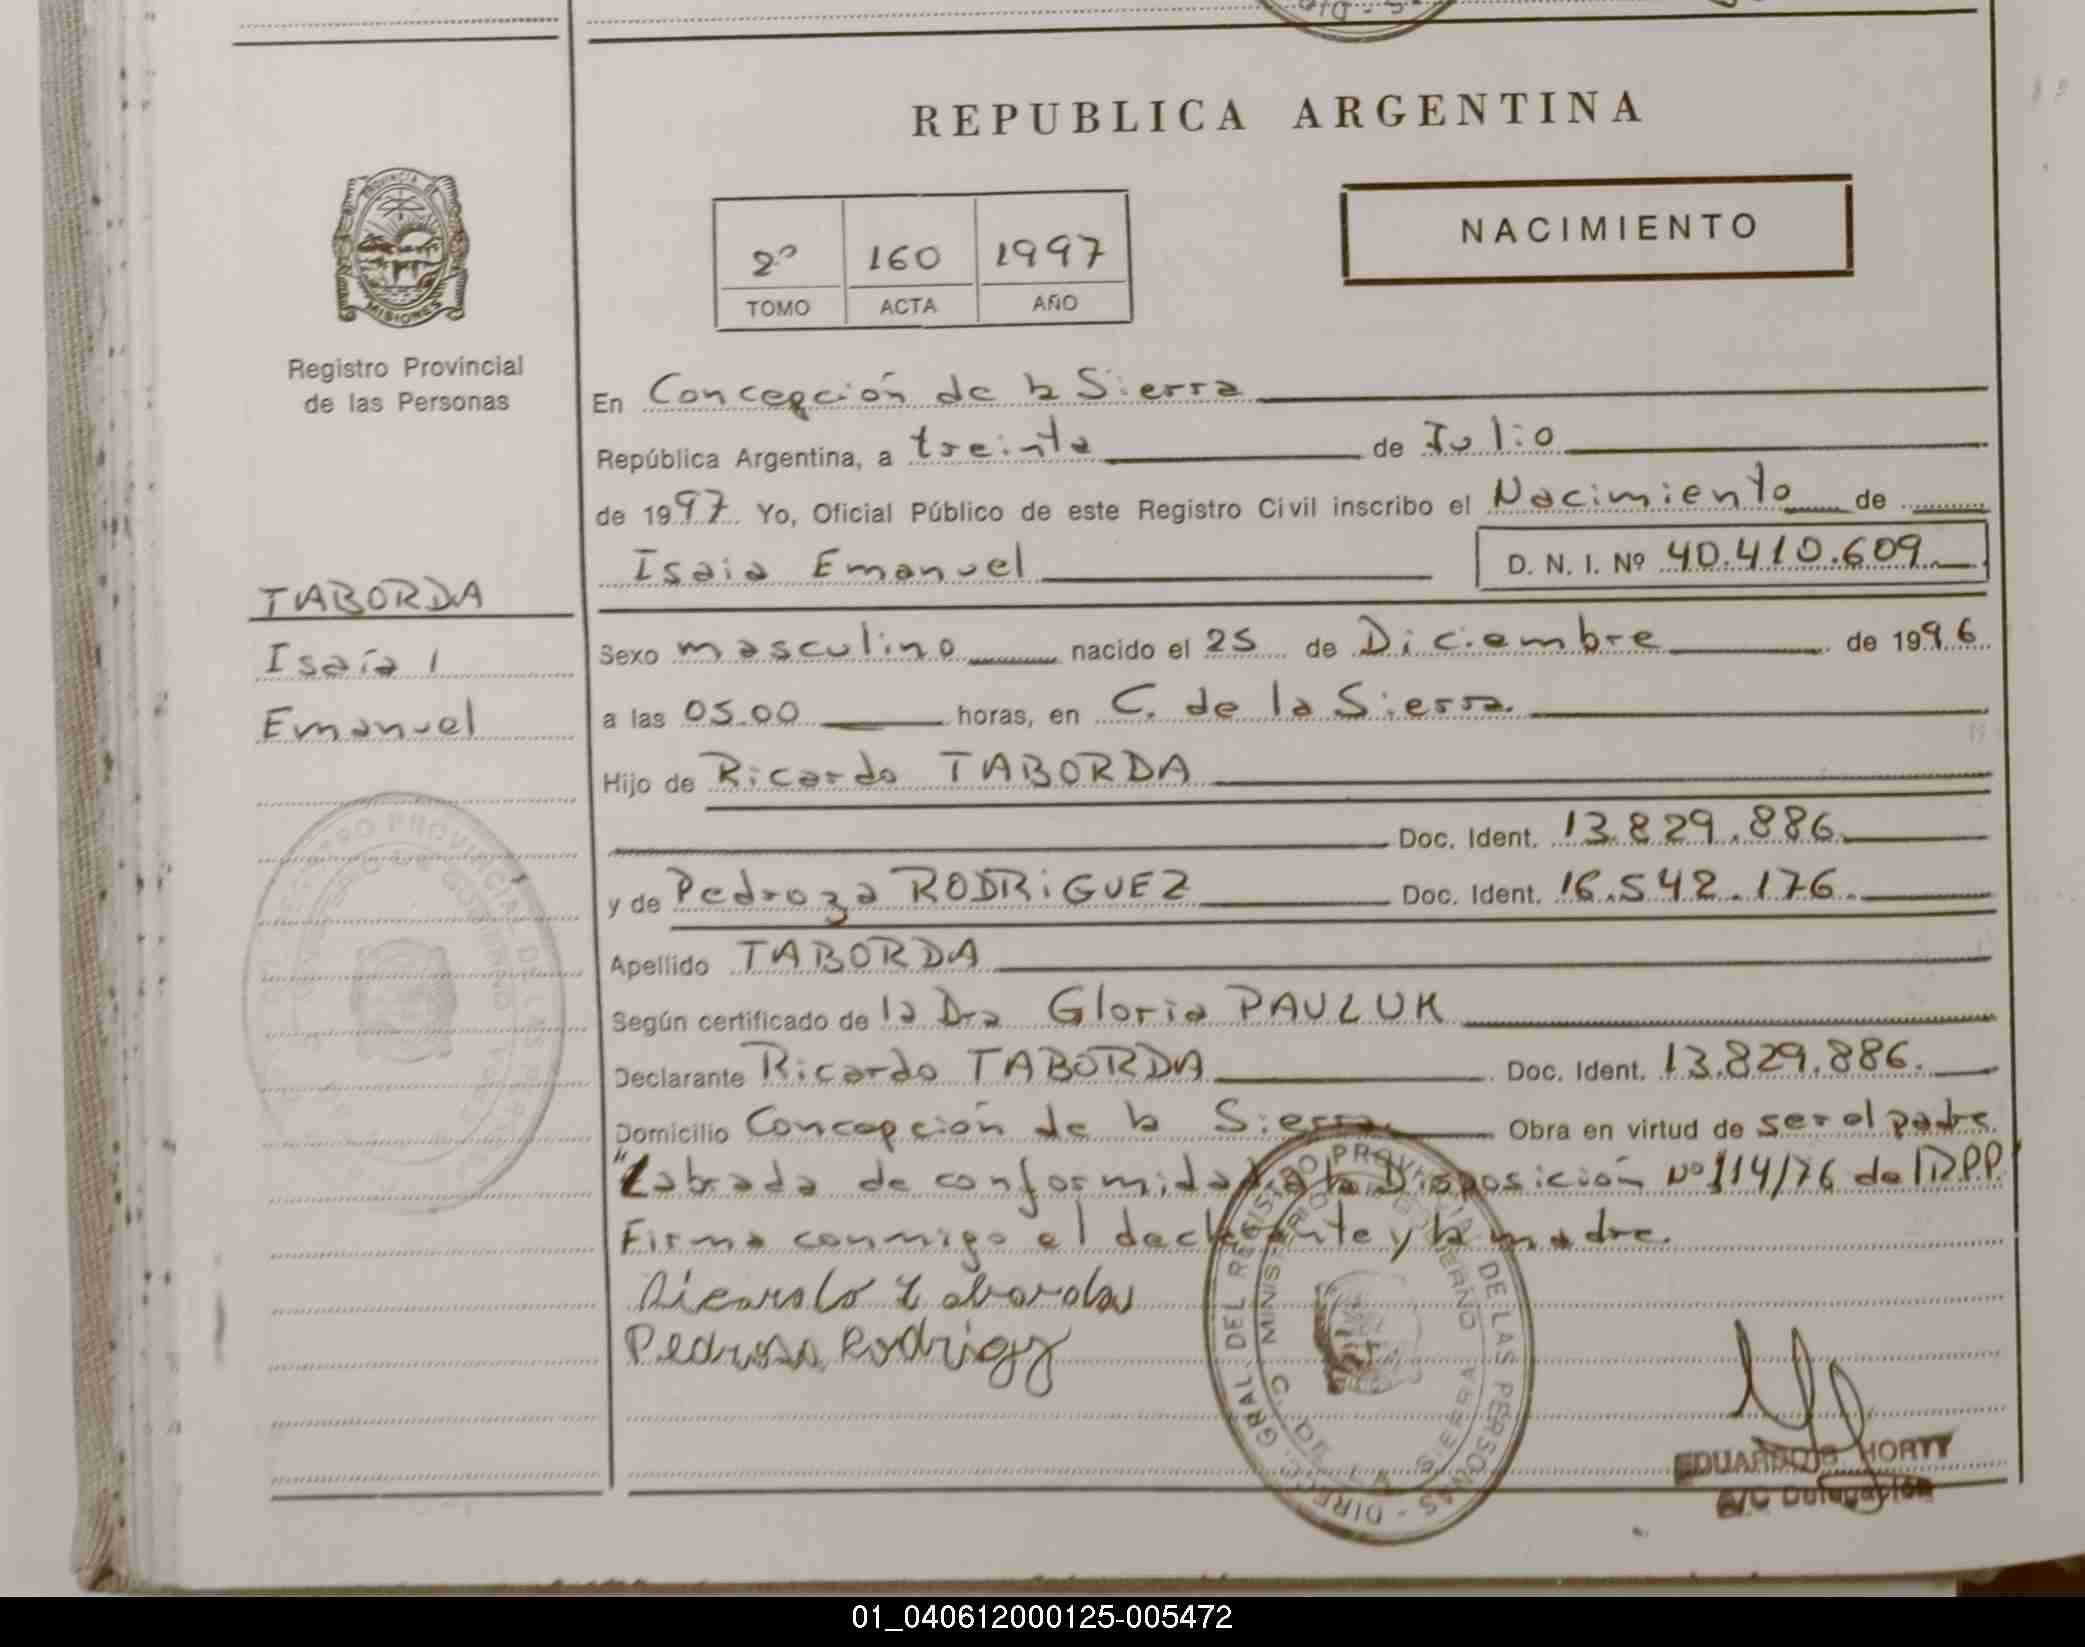 REPUBLICA ARGENTINA
NACIMIENTO
2º 160 1997
TOMO ACTA AÑO
PROVINCIA DE
MISIONES
Registro Provincial
de las Personas
TABORDA
Isaía
Emanuel
En Concepción de la Sierra
República Argentina, a treinta de Julio
de 1997 Yo, Oficial Público de este Registro Civil inscribo el Nacimiento de
Isaia Emanuel D. N. I. Nº 40.410.609
Sexo masculino nacido el 25 de Diciembre de 1996
a las 05.00 horas, en C. de la Sierra.
Hijo de Ricardo TABORDA
Doc. Ident. 13.829.886
y de Pedroza RODRiGUEZ Doc. Ident. 16.542.176.
Apellido TABORDA
Según certificado de la Dra Gloria PAULUK
Declarante Ricardo TABORDA Doc. Ident. 13.829.886.
Domicilio Concepción de la Sierra. Obra en virtud de ser el padre
"Labrada de conformidad a la Disposición Nº 114/76 del R.P.P.
Firma conmigo el declarante y la madre.
Ricardo Taborda
Pedrosa Rodrigz
DIREC. GRAL DEL REGISTRO PROVINCIAL DE LAS PERSONAS
MINISTERIO DE GOBIERNO
C. DE LA SIERRA
EDUARDO HORTT
A/C Delegación
01_040612000125-005472